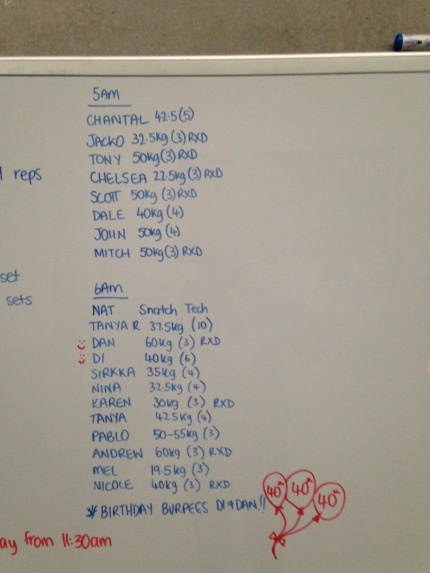 5AM
CHANTAL 42.5(5)
JACKO 32.5kg (3) RXD
TONY 50kg (3) RXD
CHELSEA 22.5kg (3) RXD
SCOTT 50kg (3) RXD
DALE 40kg (4)
JOHN 50kg (4)
MITCH 50kg (3) RXD
reps
set
sets
6AM
NAT Snatch Tech
TANYA R 37.5kg (10)
DAN 60kg (3) RXD
DI 40kg (6)
SIRKKA 35kg (4)
NINA 32.5kg (4)
KAREN 30kg (3) RXD
TANYA 42.5kg (4)
PABLO 50-55kg (3)
ANDREW 60kg (3) RXD
MEL 19.5kg (3)
NICOLE 40kg (3) RXD
* BIRTHDAY BURPEES DI & DAN!!
40 40 40
ay from 11:30am